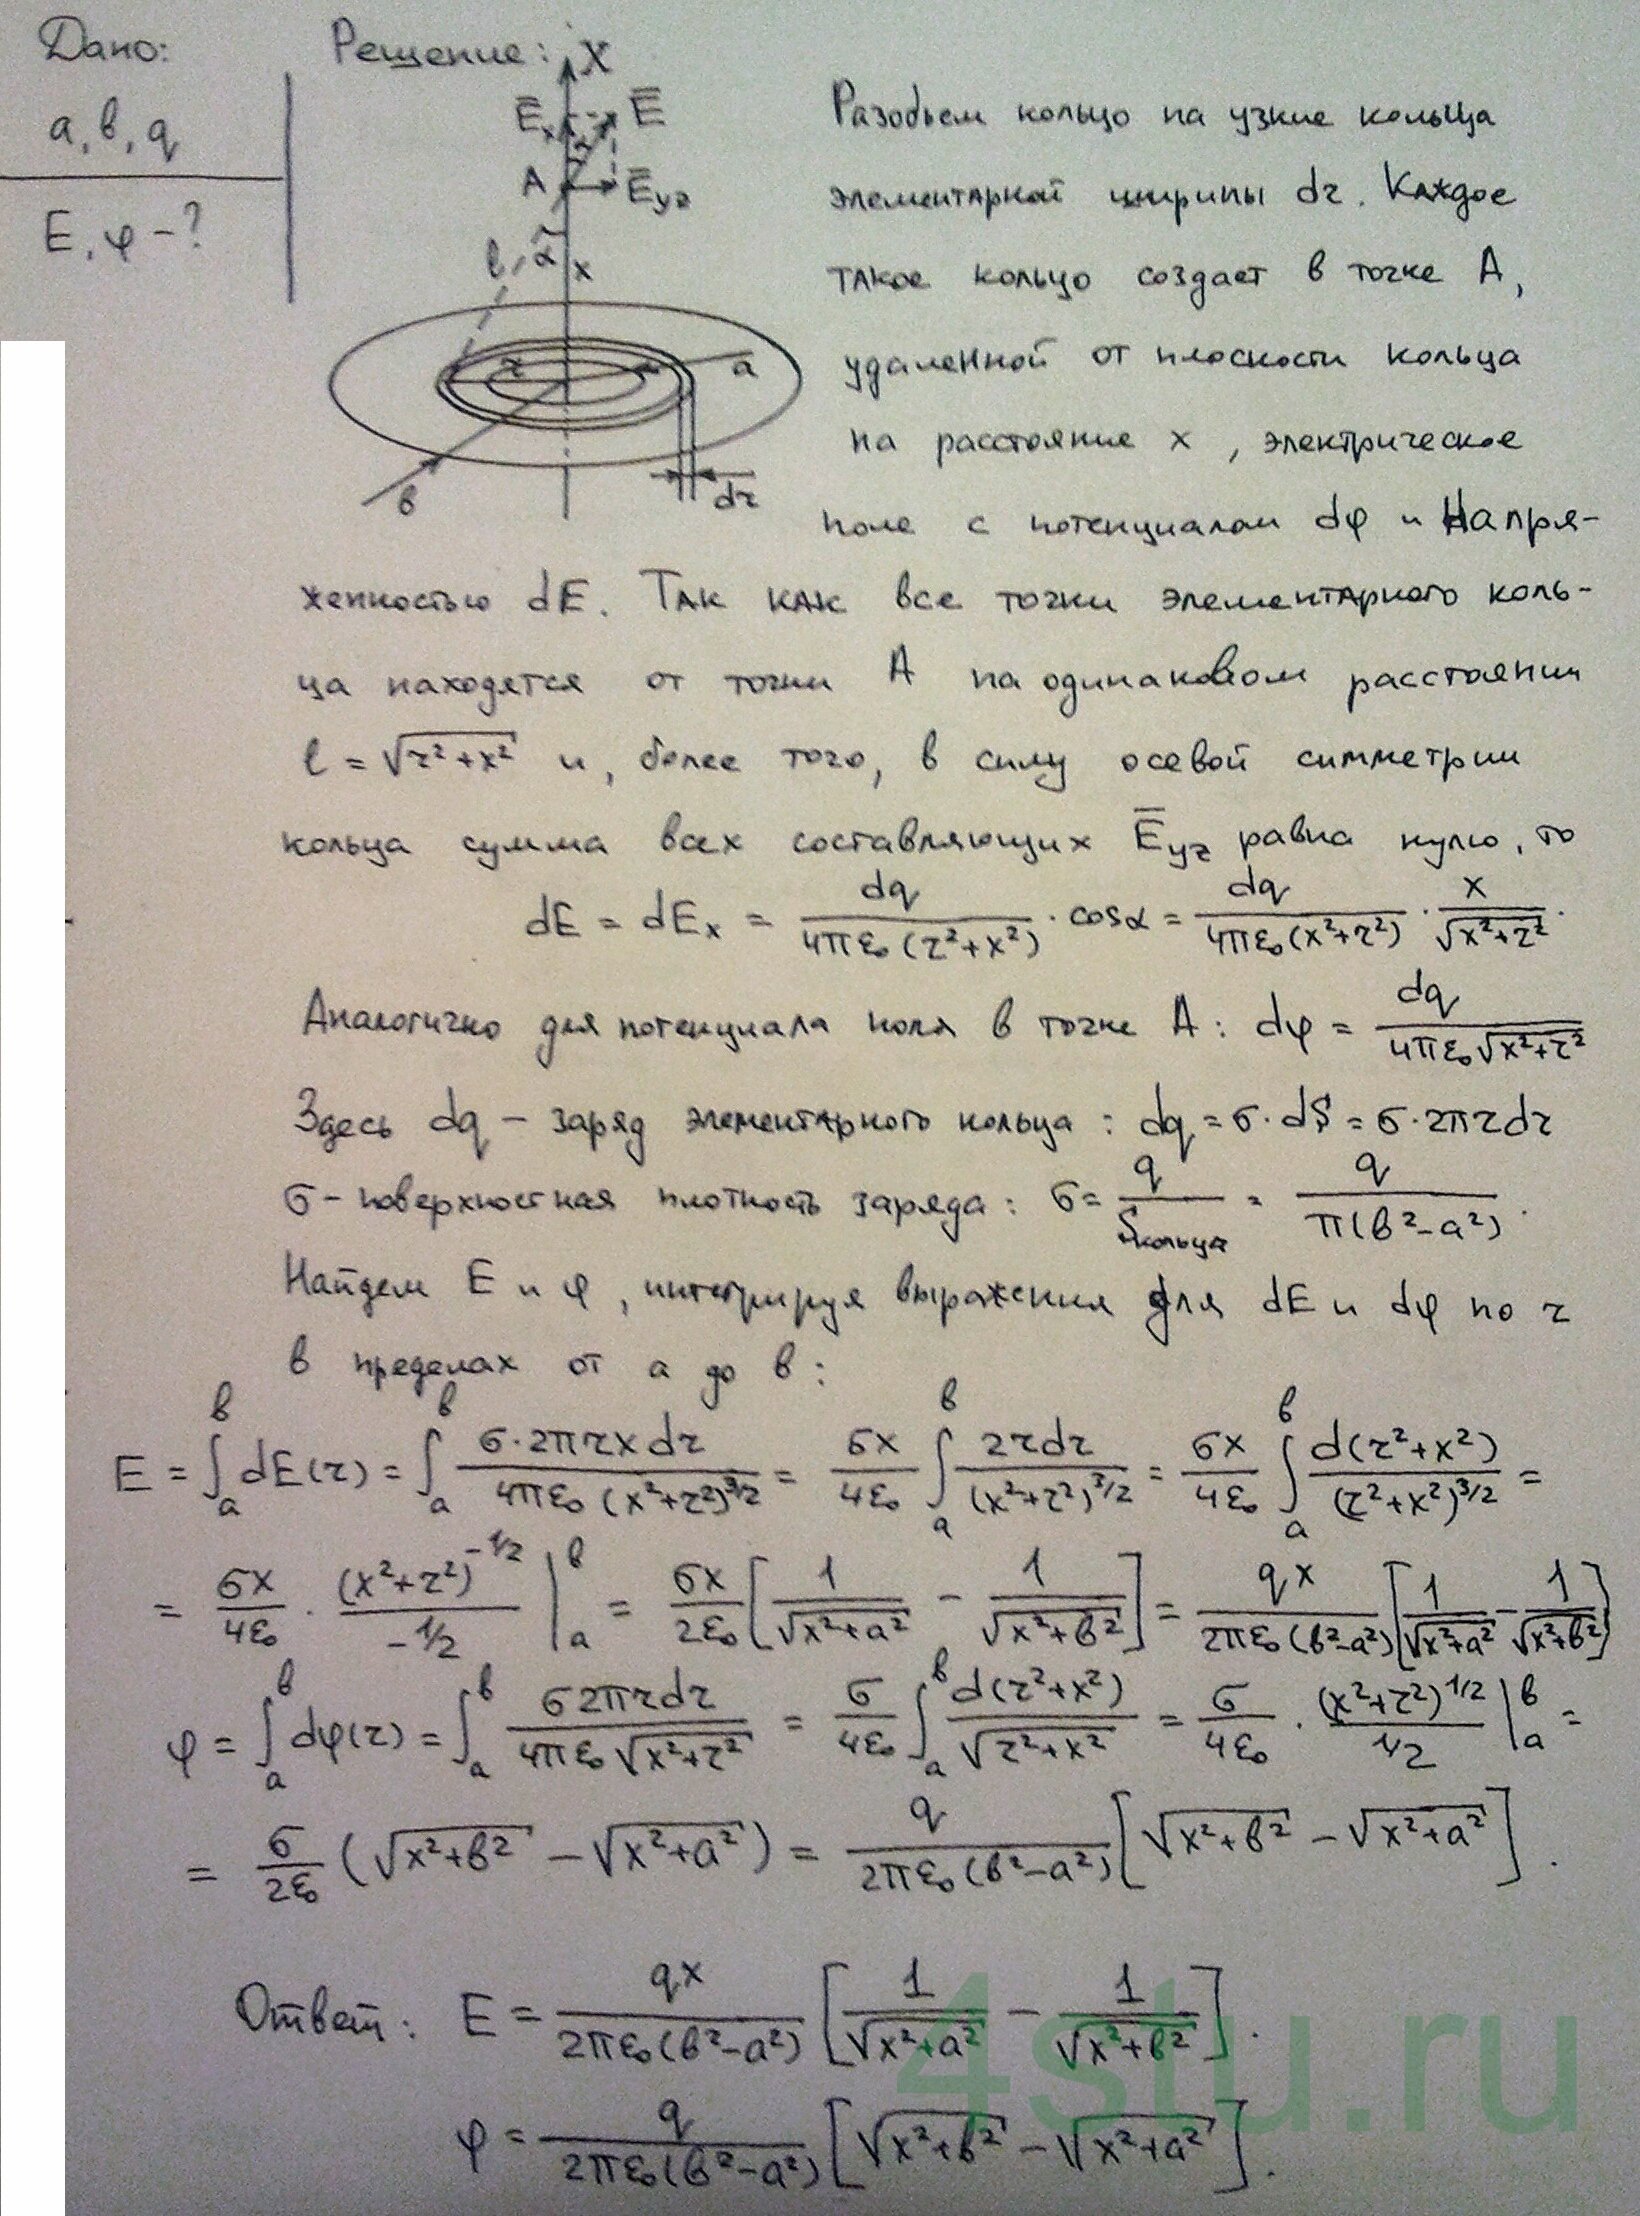 Дано:
a, b, q
E, φ - ?
Решение:
X
E̅ₓ E̅
α
A E̅yz
l α x
r a
b dr
Разобьем кольцо на узкие кольца
элементарной ширины dr. Каждое
такое кольцо создает в точке A,
удаленной от плоскости кольца
на расстояние x, электрическое
поле с потенциалом dφ и напря-
женностью dE. Так как все точки элементарного коль-
ца находятся от точки A на одинаковом расстоянии
l = √(r²+x²) и, более того, в силу осевой симметрии
кольца сумма всех составляющих E̅yz равна нулю, то
dE = dEₓ = dq/(4πε₀(r²+x²)) · cosα = dq/(4πε₀(x²+r²)) · x/√(x²+r²).
Аналогично для потенциала поля в точке A: dφ = dq/(4πε₀√(x²+r²))
Здесь dq - заряд элементарного кольца: dq = σ·dS = σ·2πrdr
σ - поверхностная плотность заряда: σ = q/Sкольца = q/(π(b²-a²)).
Найдем E и φ, интегрируя выражения для dE и dφ по r
в пределах от a до b:
E = ∫ₐᵇ dE(r) = ∫ₐᵇ σ·2πrxdr/(4πε₀(x²+r²)^3/2) = σx/4ε₀ ∫ₐᵇ 2rdr/(x²+r²)^3/2 = σx/4ε₀ ∫ₐᵇ d(r²+x²)/(r²+x²)^3/2 =
= σx/4ε₀ · (x²+r²)^-1/2/(-1/2) |ₐᵇ = σx/2ε₀ [1/√(x²+a²) - 1/√(x²+b²)] = qx/(2πε₀(b²-a²)) [1/√(x²+a²) - 1/√(x²+b²)]
φ = ∫ₐᵇ dφ(r) = ∫ₐᵇ σ2πrdr/(4πε₀√(x²+r²)) = σ/4ε₀ ∫ₐᵇ d(r²+x²)/√(r²+x²) = σ/4ε₀ · (x²+r²)^1/2/(1/2) |ₐᵇ =
= σ/2ε₀ (√(x²+b²) - √(x²+a²)) = q/(2πε₀(b²-a²)) [√(x²+b²) - √(x²+a²)].
Ответ: E = qx/(2πε₀(b²-a²)) [1/√(x²+a²) - 1/√(x²+b²)].
φ = q/(2πε₀(b²-a²)) [√(x²+b²) - √(x²+a²)].
4stu.ru